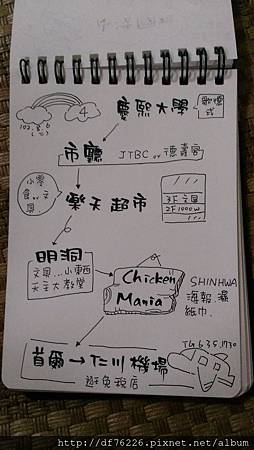 4
102.8.6
(二)
慶熙大學
歐式
市廳
JTBC or 德壽宮
小零食 or 文具
樂天超市
3F 文具
2F 1000W
明洞
文具...小東西
天主大教堂
Chicken
Mania
SHINHWA
海報、濕
紙巾.
首爾→仁川機場
逛免稅店
TG 635. 1730
http://df76226.pixnet.net/album